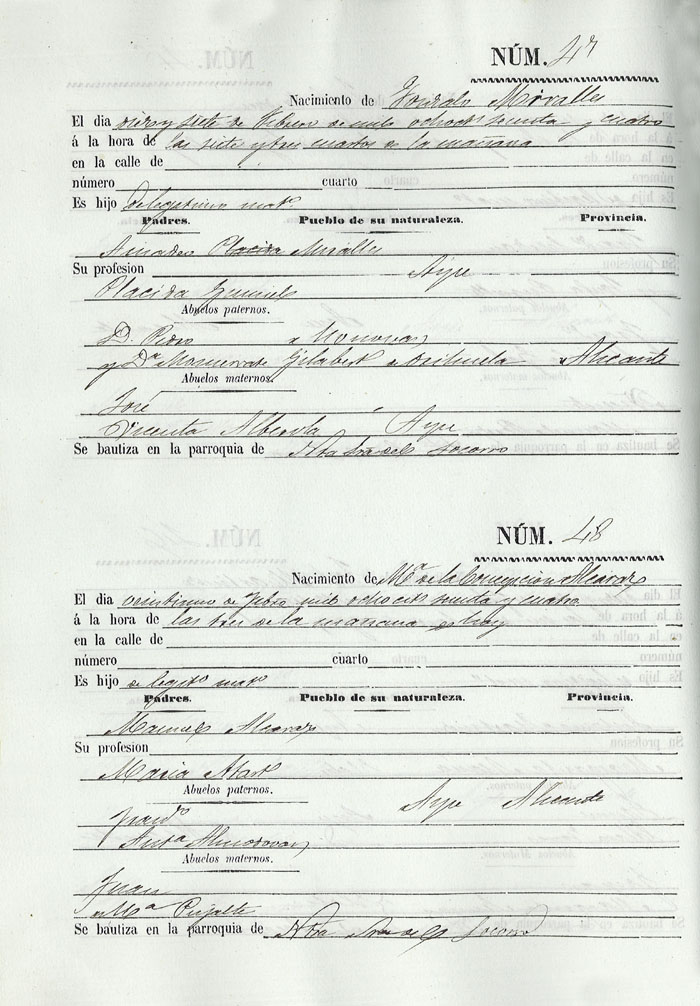 NÚM. 47
Nacimiento de Gonzalo Miralles
El dia diez y siete de Febrero de mil ochocts sesenta y cuatro
á la hora de las siete y tres cuartos de la mañana
en la calle de
número cuarto
Es hijo de legitimo matº
Padres. Pueblo de su naturaleza. Provincia.
Amadeo Placida Miralles
Su profesion Aspe
Placida
Abuelos paternos.
D. Pedro a Monovar
y Dª Monserrate Gilabert a Orihuela Alicante
Abuelos maternos.
José
Vicenta Alberola Aspe
Se bautiza en la parroquia de Ntra Sra del Socorro
NÚM. 48
Nacimiento de Mª de la Concepcion Alcaraz
El dia veintiuno de Febro mil ochocts sesenta y cuatro
á la hora de las tres de la mañana de hoy
en la calle de
número cuarto
Es hijo de legitº matº
Padres. Pueblo de su naturaleza. Provincia.
Manuel Alcaraz
Su profesion
Maria
Abuelos paternos.
Aspe Alicante
Franº
Antª Almodovar
Abuelos maternos.
Juan
Mª
Se bautiza en la parroquia de Ntra Sra del Socorro